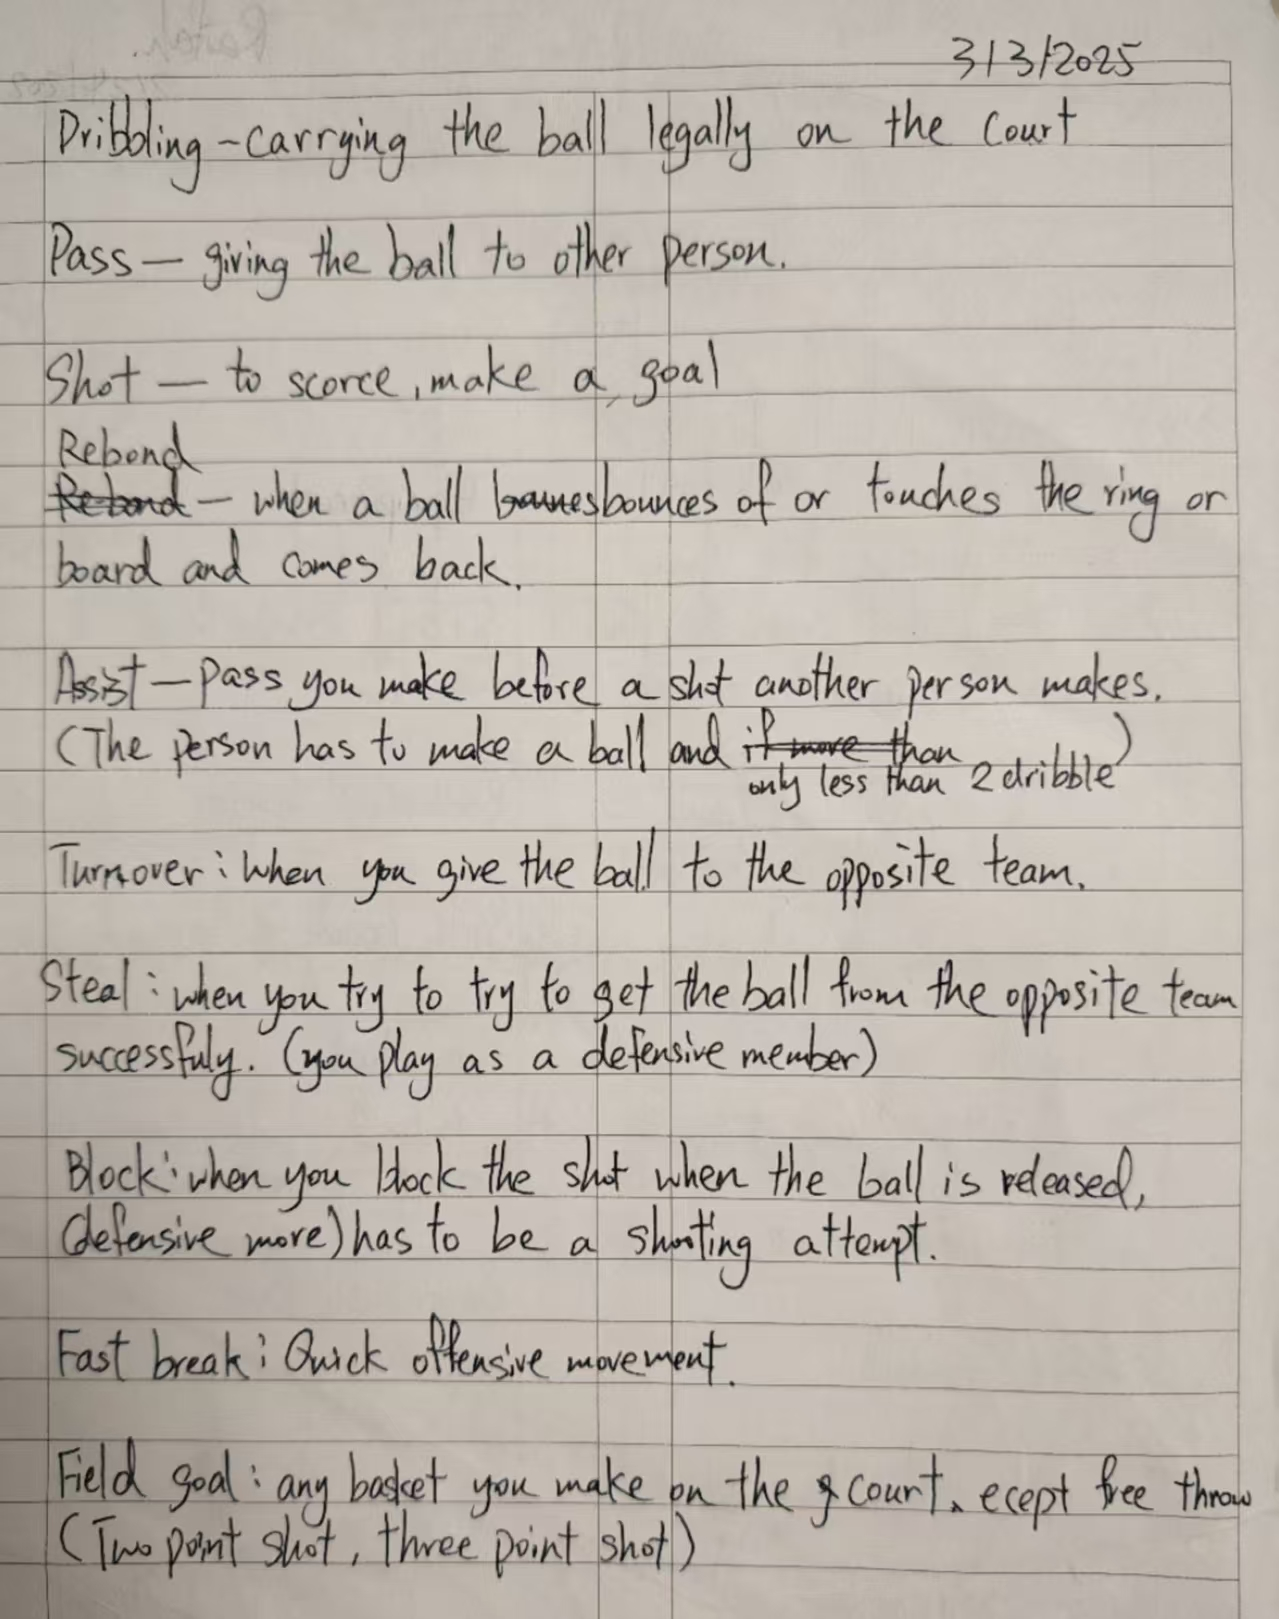 3/3/2025
Dribbling - carrying the ball legally on the court
Pass - giving the ball to other person.
Shot - to scorce, make a goal
Rebond
Rebond - when a ball bounces of or touches the ring or
board and comes back.
Assist - Pass you make before a shot another person makes.
(The person has to make a ball and if more than
only less than 2 dribble)
Turnover: When you give the ball to the opposite team.
Steal: when you try to try to get the ball from the opposite team
successfuly. (you play as a defensive member)
Block: when you block the shot when the ball is released,
(defensive more) has to be a shooting attempt.
Fast break: Quick offensive movement.
Field goal: any basket you make on the court, ecept free throw
(Two point shot, three point shot)